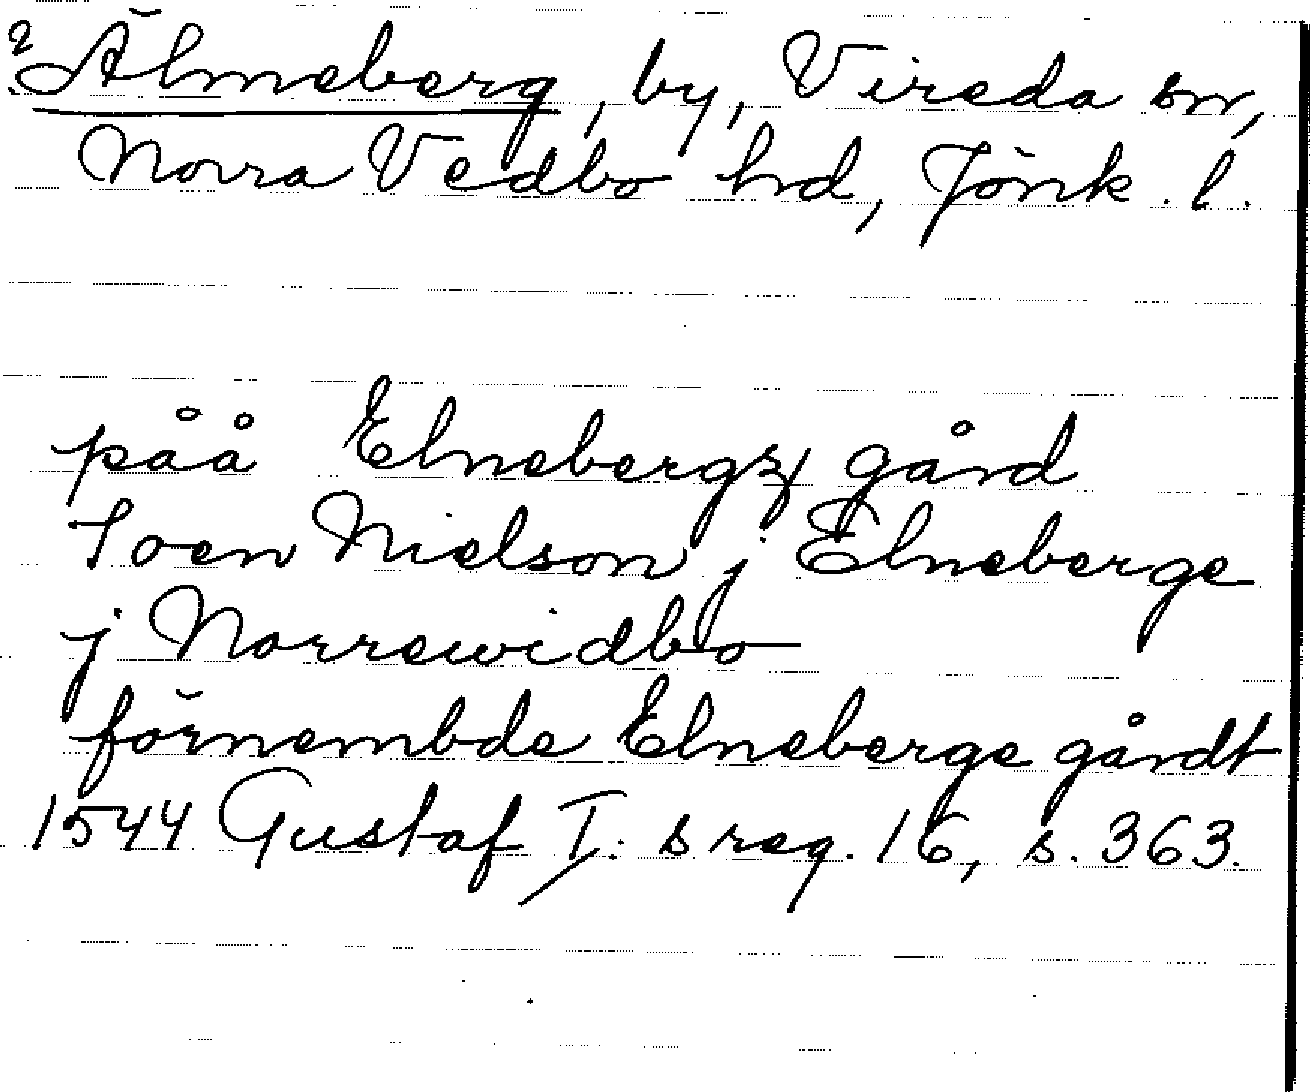 ? Älmeberg, by, Vireda sn,
Norra Vedbo hd, Jönk. l.
påå Elnebergz gård
Soen Nielson j Elneberge
j Norrewidbo
förnembde Elneberge gårdt
1544 Gustaf I:s reg. 16, s. 363.